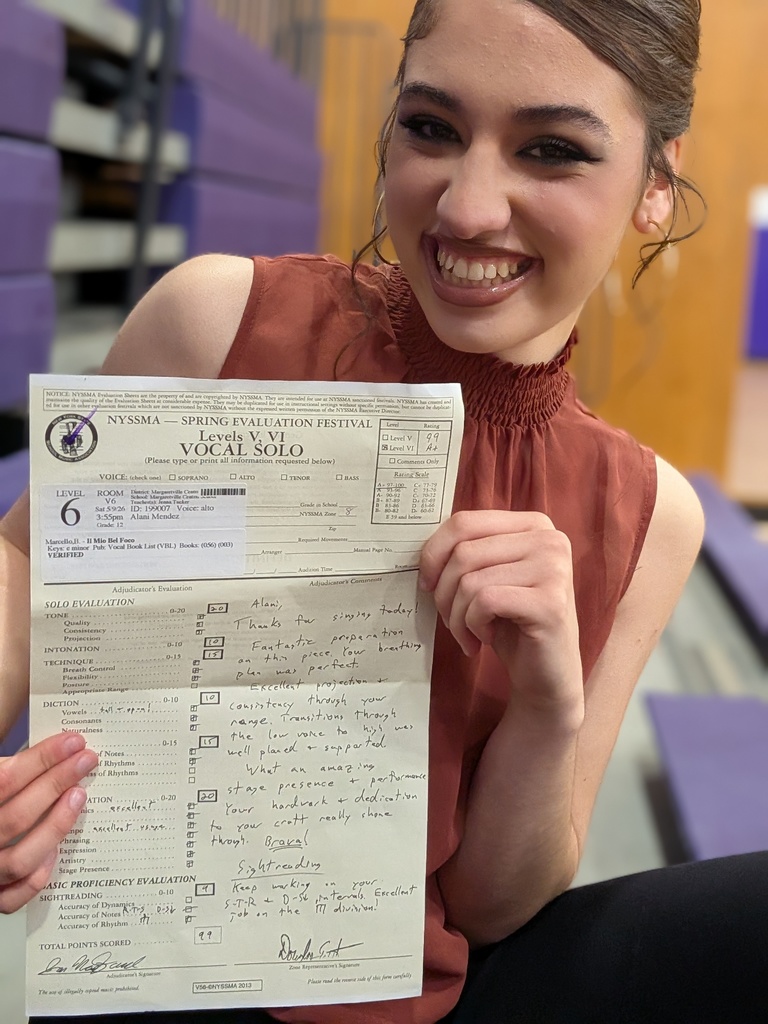 NOTICE: Evaluation Sheets are the property of and are copyrighted by NYSSMA. They are intended for use at NYSSMA sanctioned festivals. NYSSMA has created and
maintains the quality of the Evaluation Sheets at considerable expense. They may be duplicated for use in instructional settings without specific permission, but cannot be duplicat-
ed for use in other evaluation festivals which are not sanctioned by NYSSMA without the expressed written permission of the NYSSMA Executive Director.
NYSSMA — SPRING EVALUATION FESTIVAL
Levels V, VI
VOCAL SOLO
(Please type or print all information requested below)
Level Rating
Level V 99
Level VI A+
Comments Only
Rating Scale
A+ 97-100 C+ 77-79
A 93-96 C 73-76
A- 90-92 C- 70-72
B+ 87-89 D+ 67-69
B 83-86 D 63-66
B- 80-82 D- 60-62
VOICE: (check one) SOPRANO ALTO TENOR BASS
LEVEL
6
ROOM
V6
Sat 5/9/26
3:55pm
Grade 12
District: Margaretville Central
School: Margaretville Central
Teacher(s):
ID: 199007 Voice: alto
Alani Mendez
Grade in School
NYSSMA Zone 8
Zip
Marcello,B. - Il Mio Bel Foco
Keys: c minor Pub: Vocal Book List (VBL) Books: (056) (003)
VERIFIED
Required Movements
Arranger Manual Page No.
Audition Time
Adjudicator's Evaluation
Adjudicator's Comments
SOLO EVALUATION
TONE 0-20 20
Quality
Consistency
Projection
INTONATION 0-10 10
TECHNIQUE 0-15 15
Breath Control
Flexibility
Posture
Appropriate Range
DICTION 0-10 10
Vowels tall + open!
Consonants
Naturalness
0-15 15
of Notes
of Rhythms
ATION 0-20 20
ics excellent
mpo excellent
Phrasing
Expression
Artistry
Stage Presence
BASIC PROFICIENCY EVALUATION
SIGHTREADING 0-10 9
Accuracy of Dynamics
Accuracy of Notes
Accuracy of Rhythm
TOTAL POINTS SCORED 99
Alani,
Thanks for singing today!
Fantastic preparation
on this piece. Your breathing
plan was perfect.
Excellent projection +
consistency through your
range. Transitions through
the low voice to high was
well placed + supported.
What an amazing
stage presence + performance
Your hardwork + dedication
to your craft really shone
through. Brava!
Sightreading
Keep working on your
S-T-R + D-Sb intervals. Excellent
job on the M division!
Adjudicator's Signature
Zone Representative's Signature
The use of illegally copied music prohibited.
V56-©NYSSMA 2013
Please read the reverse side of this form carefully